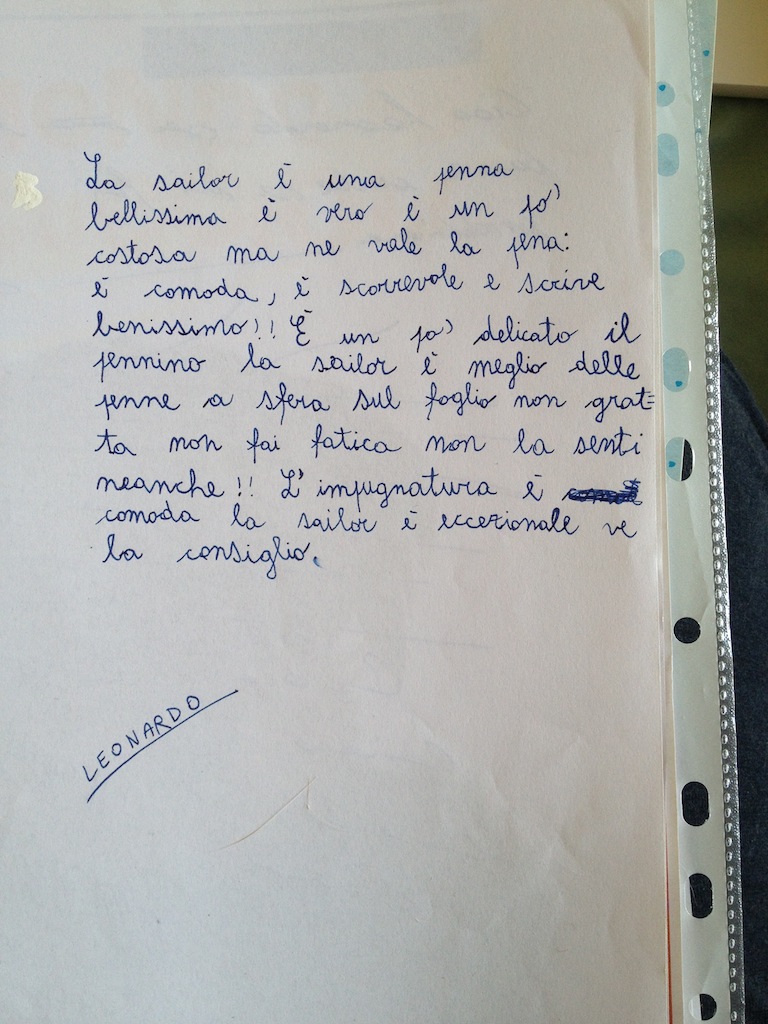 La sailor è una penna
bellissima è vero è un po'
costosa ma ne vale la pena:
è comoda, è scorrevole e scrive
benissimo!! È un po' delicato il
pennino la sailor è meglio delle
penne a sfera sul foglio non grat=
ta non fai fatica non la senti
neanche!! L'impugnatura è
comoda la sailor è eccezionale ve
la consiglio.
LEONARDO